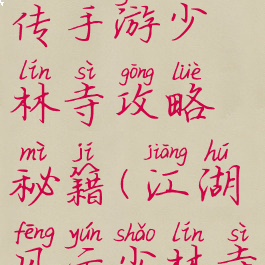 传手游少
lín sì gōng lüè
林寺攻略
mì jí jiāng hú
秘籍(江湖
fēng yún shǎo lín sì
风云少林寺